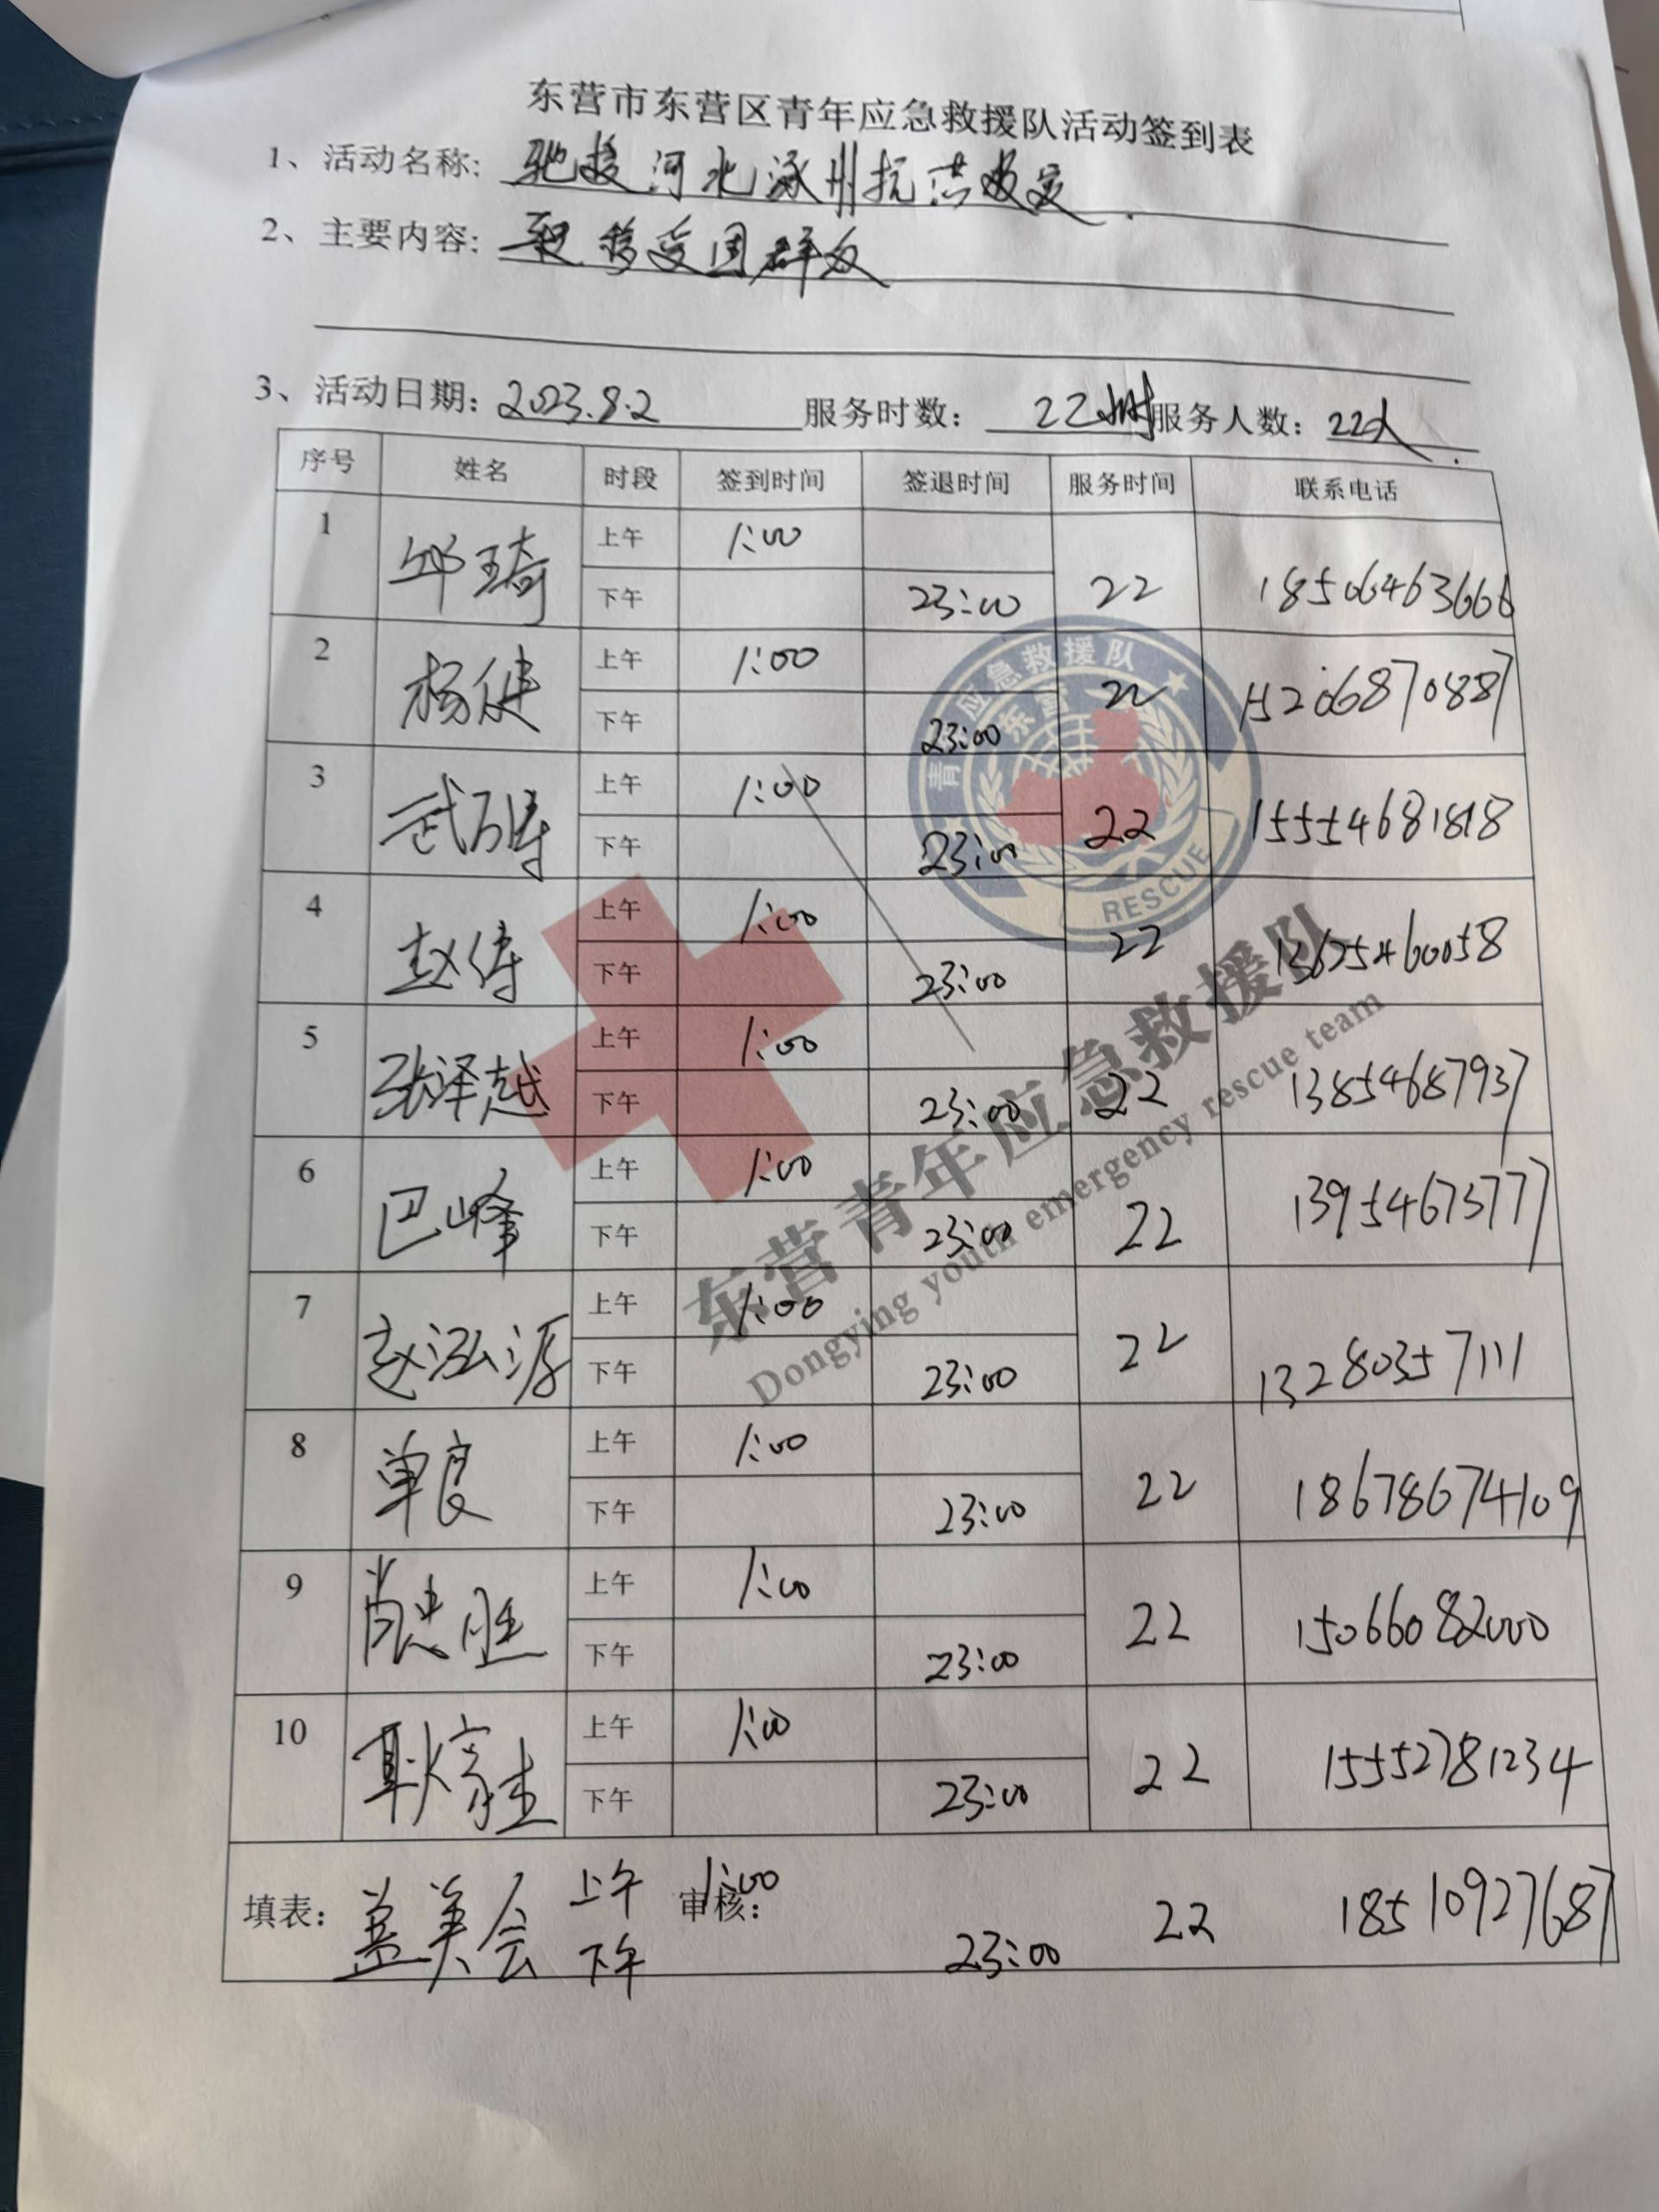 东营市东营区青年应急救援队活动签到表
1、活动名称: 驰援河北涿州抗洪救灾.
2、主要内容: 转移受困群众
3、活动日期: 2023.8.2 服务时数: 22小时 服务人数: 22人.
序号 姓名 时段 签到时间 签退时间 服务时间 联系电话
1 邱琦 上午 1:00
下午 23:00 22 18506463666
2 杨健 上午 1:00
下午 23:00 22 15206870887
3 武万涛 上午 1:00
下午 23:00 22 15554681818
4 赵伟 上午 1:00
下午 23:00 22 13625460058
5 张泽越 上午 1:00
下午 23:00 22 13854687937
6 巴峰 上午 1:00
下午 23:00 22 13954673777
7 赵泓源 上午 1:00
下午 23:00 22 13280357111
8 单良 上午 1:00
下午 23:00 22 18678674109
9 尚忠胜 上午 1:00
下午 23:00 22 15066082000
10 耿 上午 1:00
下午 23:00 22 15552781234
填表: 盖美会 上午 审核: 1:00
下午 23:00 22 18510927687
青年应急救援队
东营
RESCUE
东营青年应急救援队
Dongying youth emergency rescue team